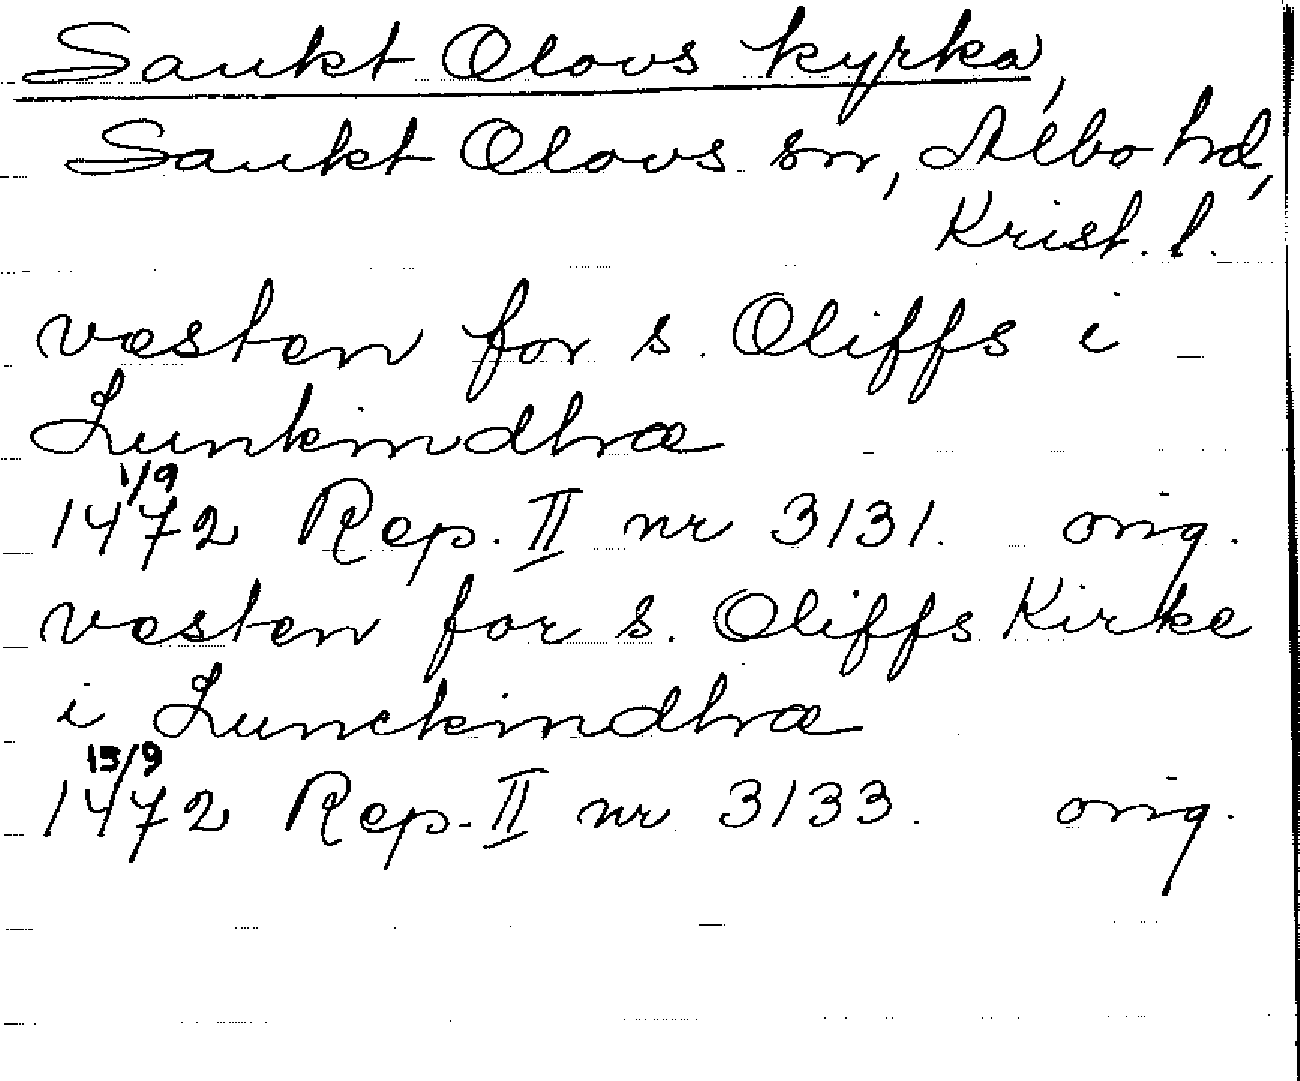 Sankt Olovs kyrka,
Sankt Olovs sn, Albo hd,
Krist. l.
væsten for s. Oliffs i
Lunkindhræ
1/9
1472 Rep. II nr 3131. orig.
vesten for s. Oliffs Kirke
i Lunckindhræ
13/9
1472 Rep. II nr 3133. orig.